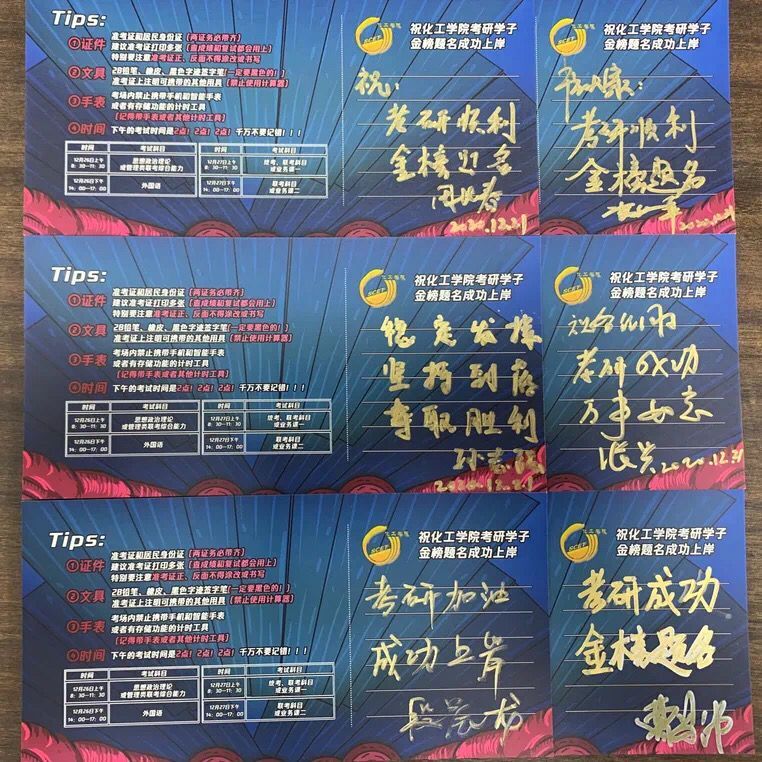 Tips:
①证件
准考证和居民身份证（两证务必带齐）
建议准考证打印多张（查成绩和复试都会用上）
特别要注意准考证正、反面不得涂改或书写
②文具
2B铅笔、橡皮、黑色字迹签字笔(一定要黑色的!)
准考证上注明可携带的其他用具（禁止使用计算器）
③手表
考场内禁止携带手机和智能手表
或者有存储功能的计时工具
(记得带手表或者其他计时工具)
④时间
下午的考试时间是2点！2点！2点！千万不要记错！！！
时间 考试科目 时间 考试科目
12月26日上午 8：30—11：30 思想政治理论 或管理类联考综合能力 12月27日上午 8：30—11：30 统考、联考科目 或业务课一
12月26日下午 14：00—17：00 外国语 12月27日下午 14：00—17：00 联考科目 或业务课二
祝化工学院考研学子
金榜题名成功上岸
祝：
考研顺利
金榜题名
2020.12.21
祝化工学院考研学子
金榜题名成功上岸
考研顺利
金榜题名
Tips:
①证件
准考证和居民身份证（两证务必带齐）
建议准考证打印多张（查成绩和复试都会用上）
特别要注意准考证正、反面不得涂改或书写
②文具
2B铅笔、橡皮、黑色字迹签字笔(一定要黑色的!)
准考证上注明可携带的其他用具（禁止使用计算器）
③手表
考场内禁止携带手机和智能手表
或者有存储功能的计时工具
(记得带手表或者其他计时工具)
④时间
下午的考试时间是2点！2点！2点！千万不要记错！！！
时间 考试科目 时间 考试科目
12月26日上午 8：30—11：30 思想政治理论 或管理类联考综合能力 12月27日上午 8：30—11：30 统考、联考科目 或业务课一
12月26日下午 14：00—17：00 外国语 12月27日下午 14：00—17：00 联考科目 或业务课二
化工学院
SCET
祝化工学院考研学子
金榜题名成功上岸
稳定发挥
坚持到底
夺取胜利
2020.12.21
祝化工学院考研学子
金榜题名成功上岸
祝各位同
考研成功
万事如志
2020.12.21
Tips:
①证件
准考证和居民身份证（两证务必带齐）
建议准考证打印多张（查成绩和复试都会用上）
特别要注意准考证正、反面不得涂改或书写
②文具
2B铅笔、橡皮、黑色字迹签字笔(一定要黑色的!)
准考证上注明可携带的其他用具（禁止使用计算器）
③手表
考场内禁止携带手机和智能手表
或者有存储功能的计时工具
(记得带手表或者其他计时工具)
④时间
下午的考试时间是2点！2点！2点！千万不要记错！！！
时间 考试科目 时间 考试科目
12月26日上午 8：30—11：30 思想政治理论 或管理类联考综合能力 12月27日上午 8：30—11：30 统考、联考科目 或业务课一
12月26日下午 14：00—17：00 外国语 12月27日下午 14：00—17：00 联考科目 或业务课二
化工学院
SCET
祝化工学院考研学子
金榜题名成功上岸
考研加油
成功上岸
祝化工学院考研学子
金榜题名成功上岸
考研成功
金榜题名